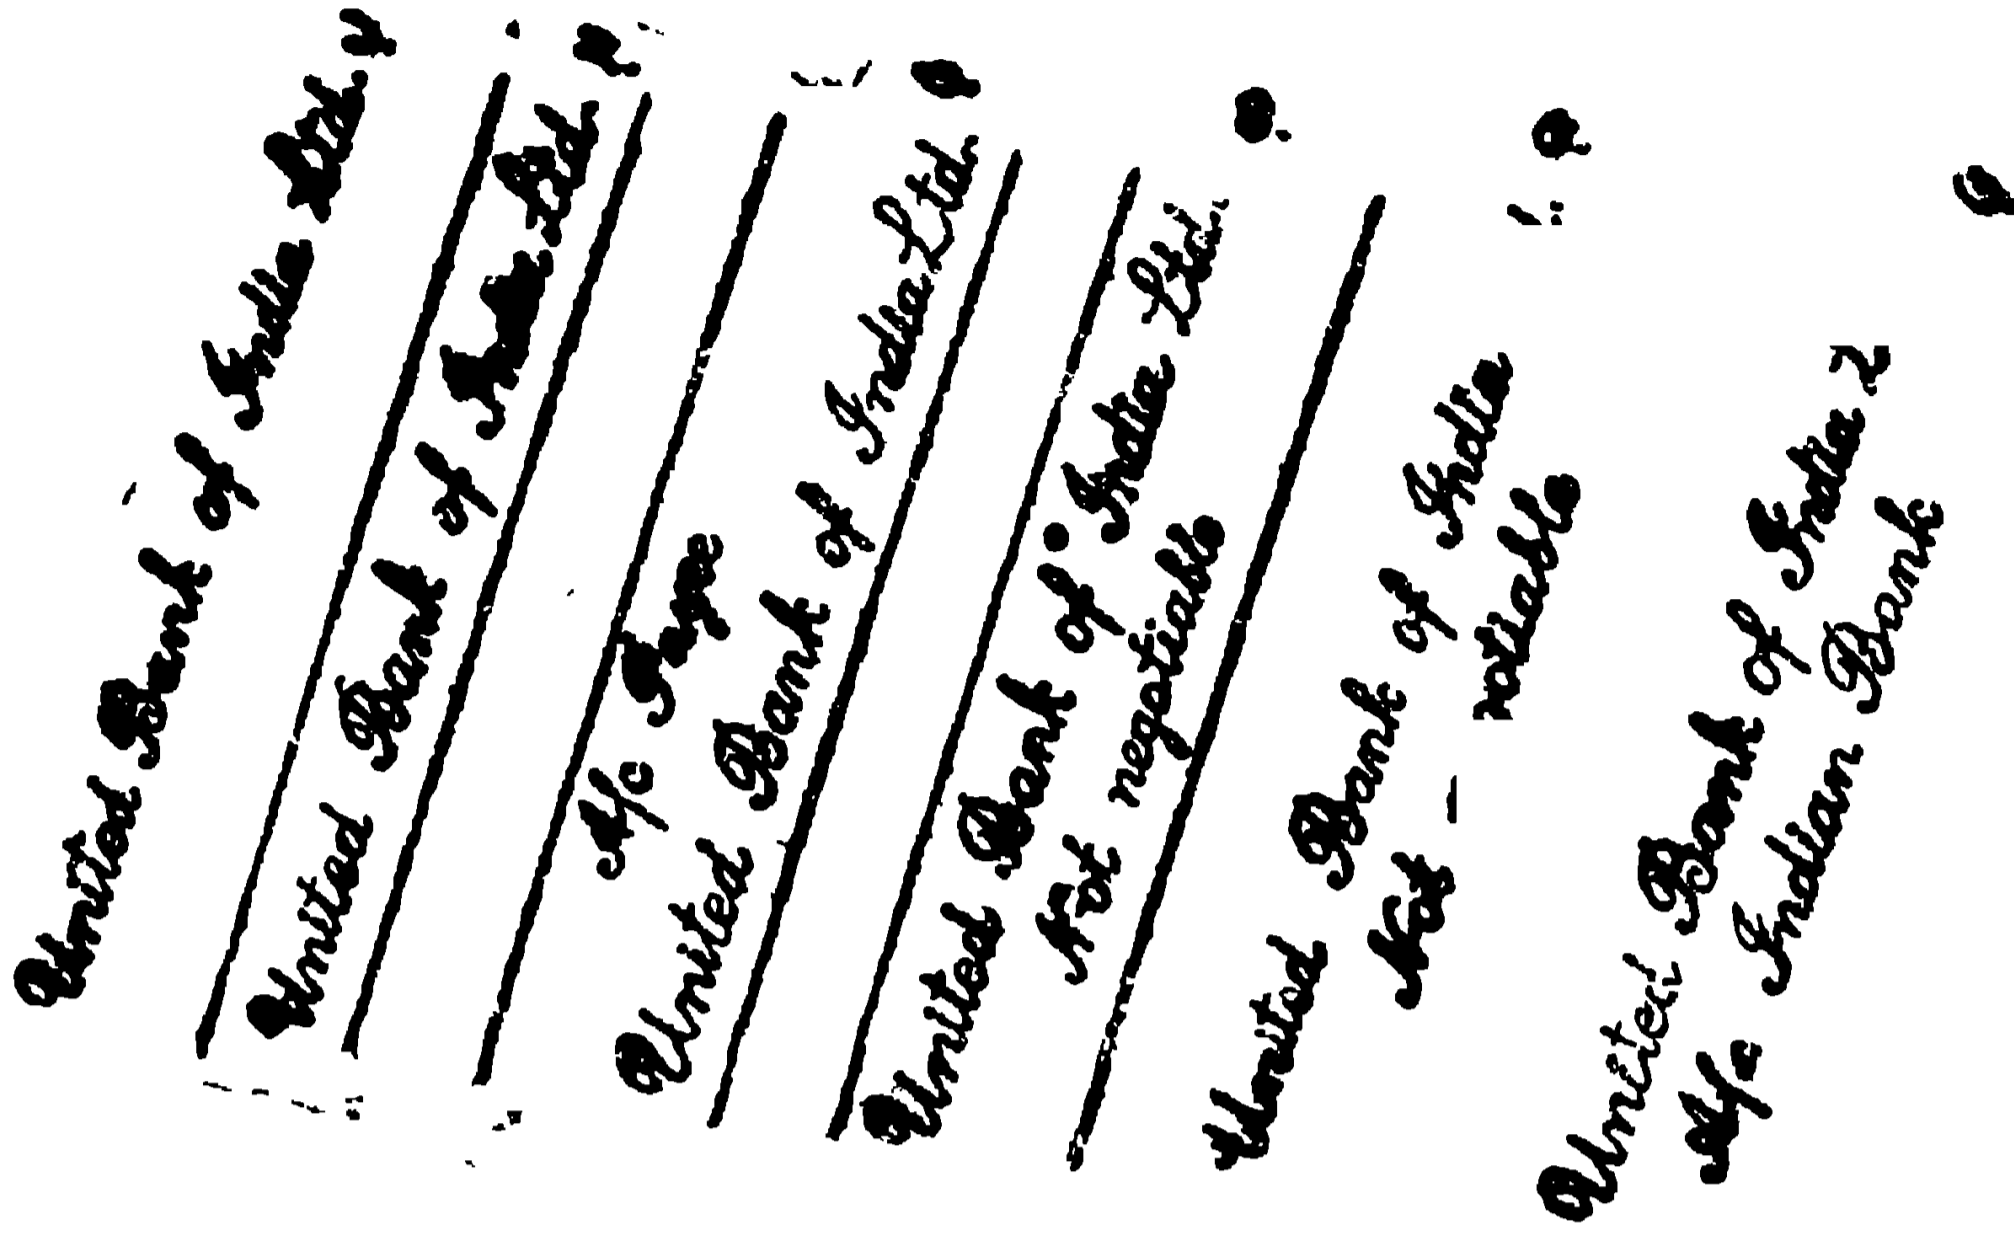 United Bank of India Ltd.
United Bank of India Ltd.
A/c Payee
United Bank of India Ltd.
United Bank of India Ltd.
Not negotiable
United Bank of India
Not
United Bank of India
A/c Indian Bank